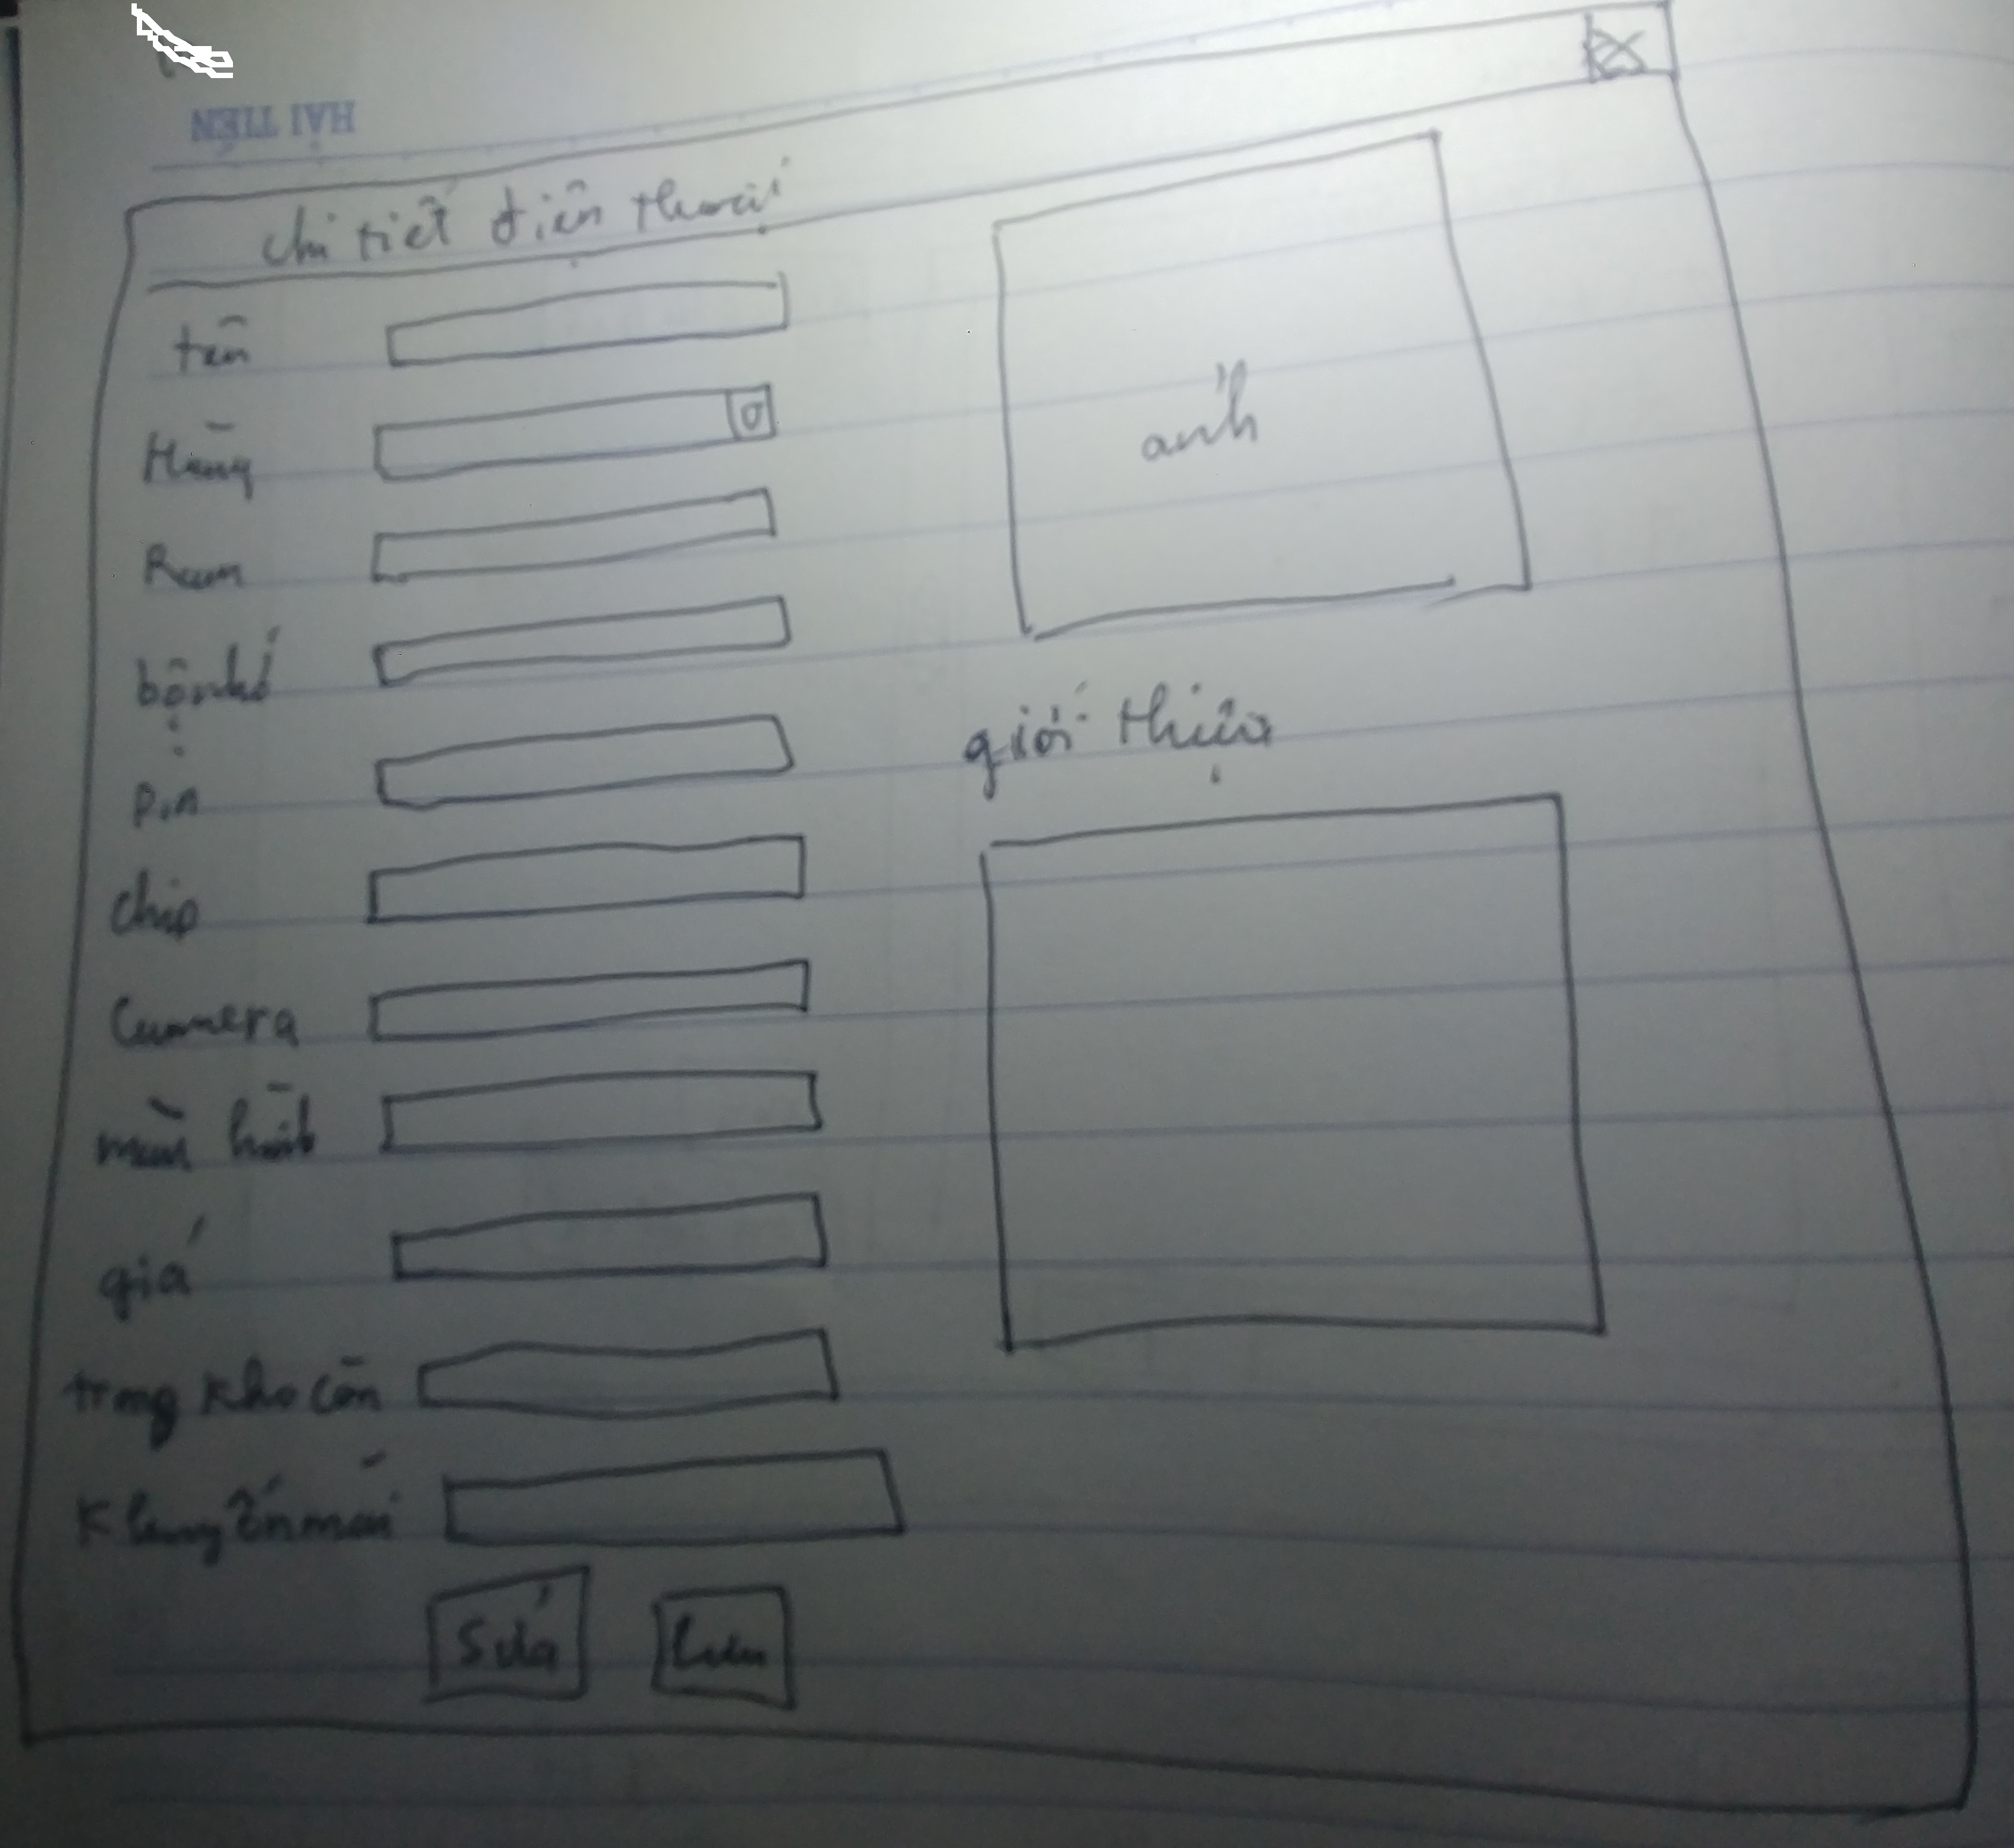 HẢI TIẾN
chi tiết điện thoại
tên
Hãng
Ram
bộ nhớ
pin
chip
Camera
màn hình
giá
trong kho còn
Khuyến mãi
Sửa
Lưu
ảnh
giới thiệu